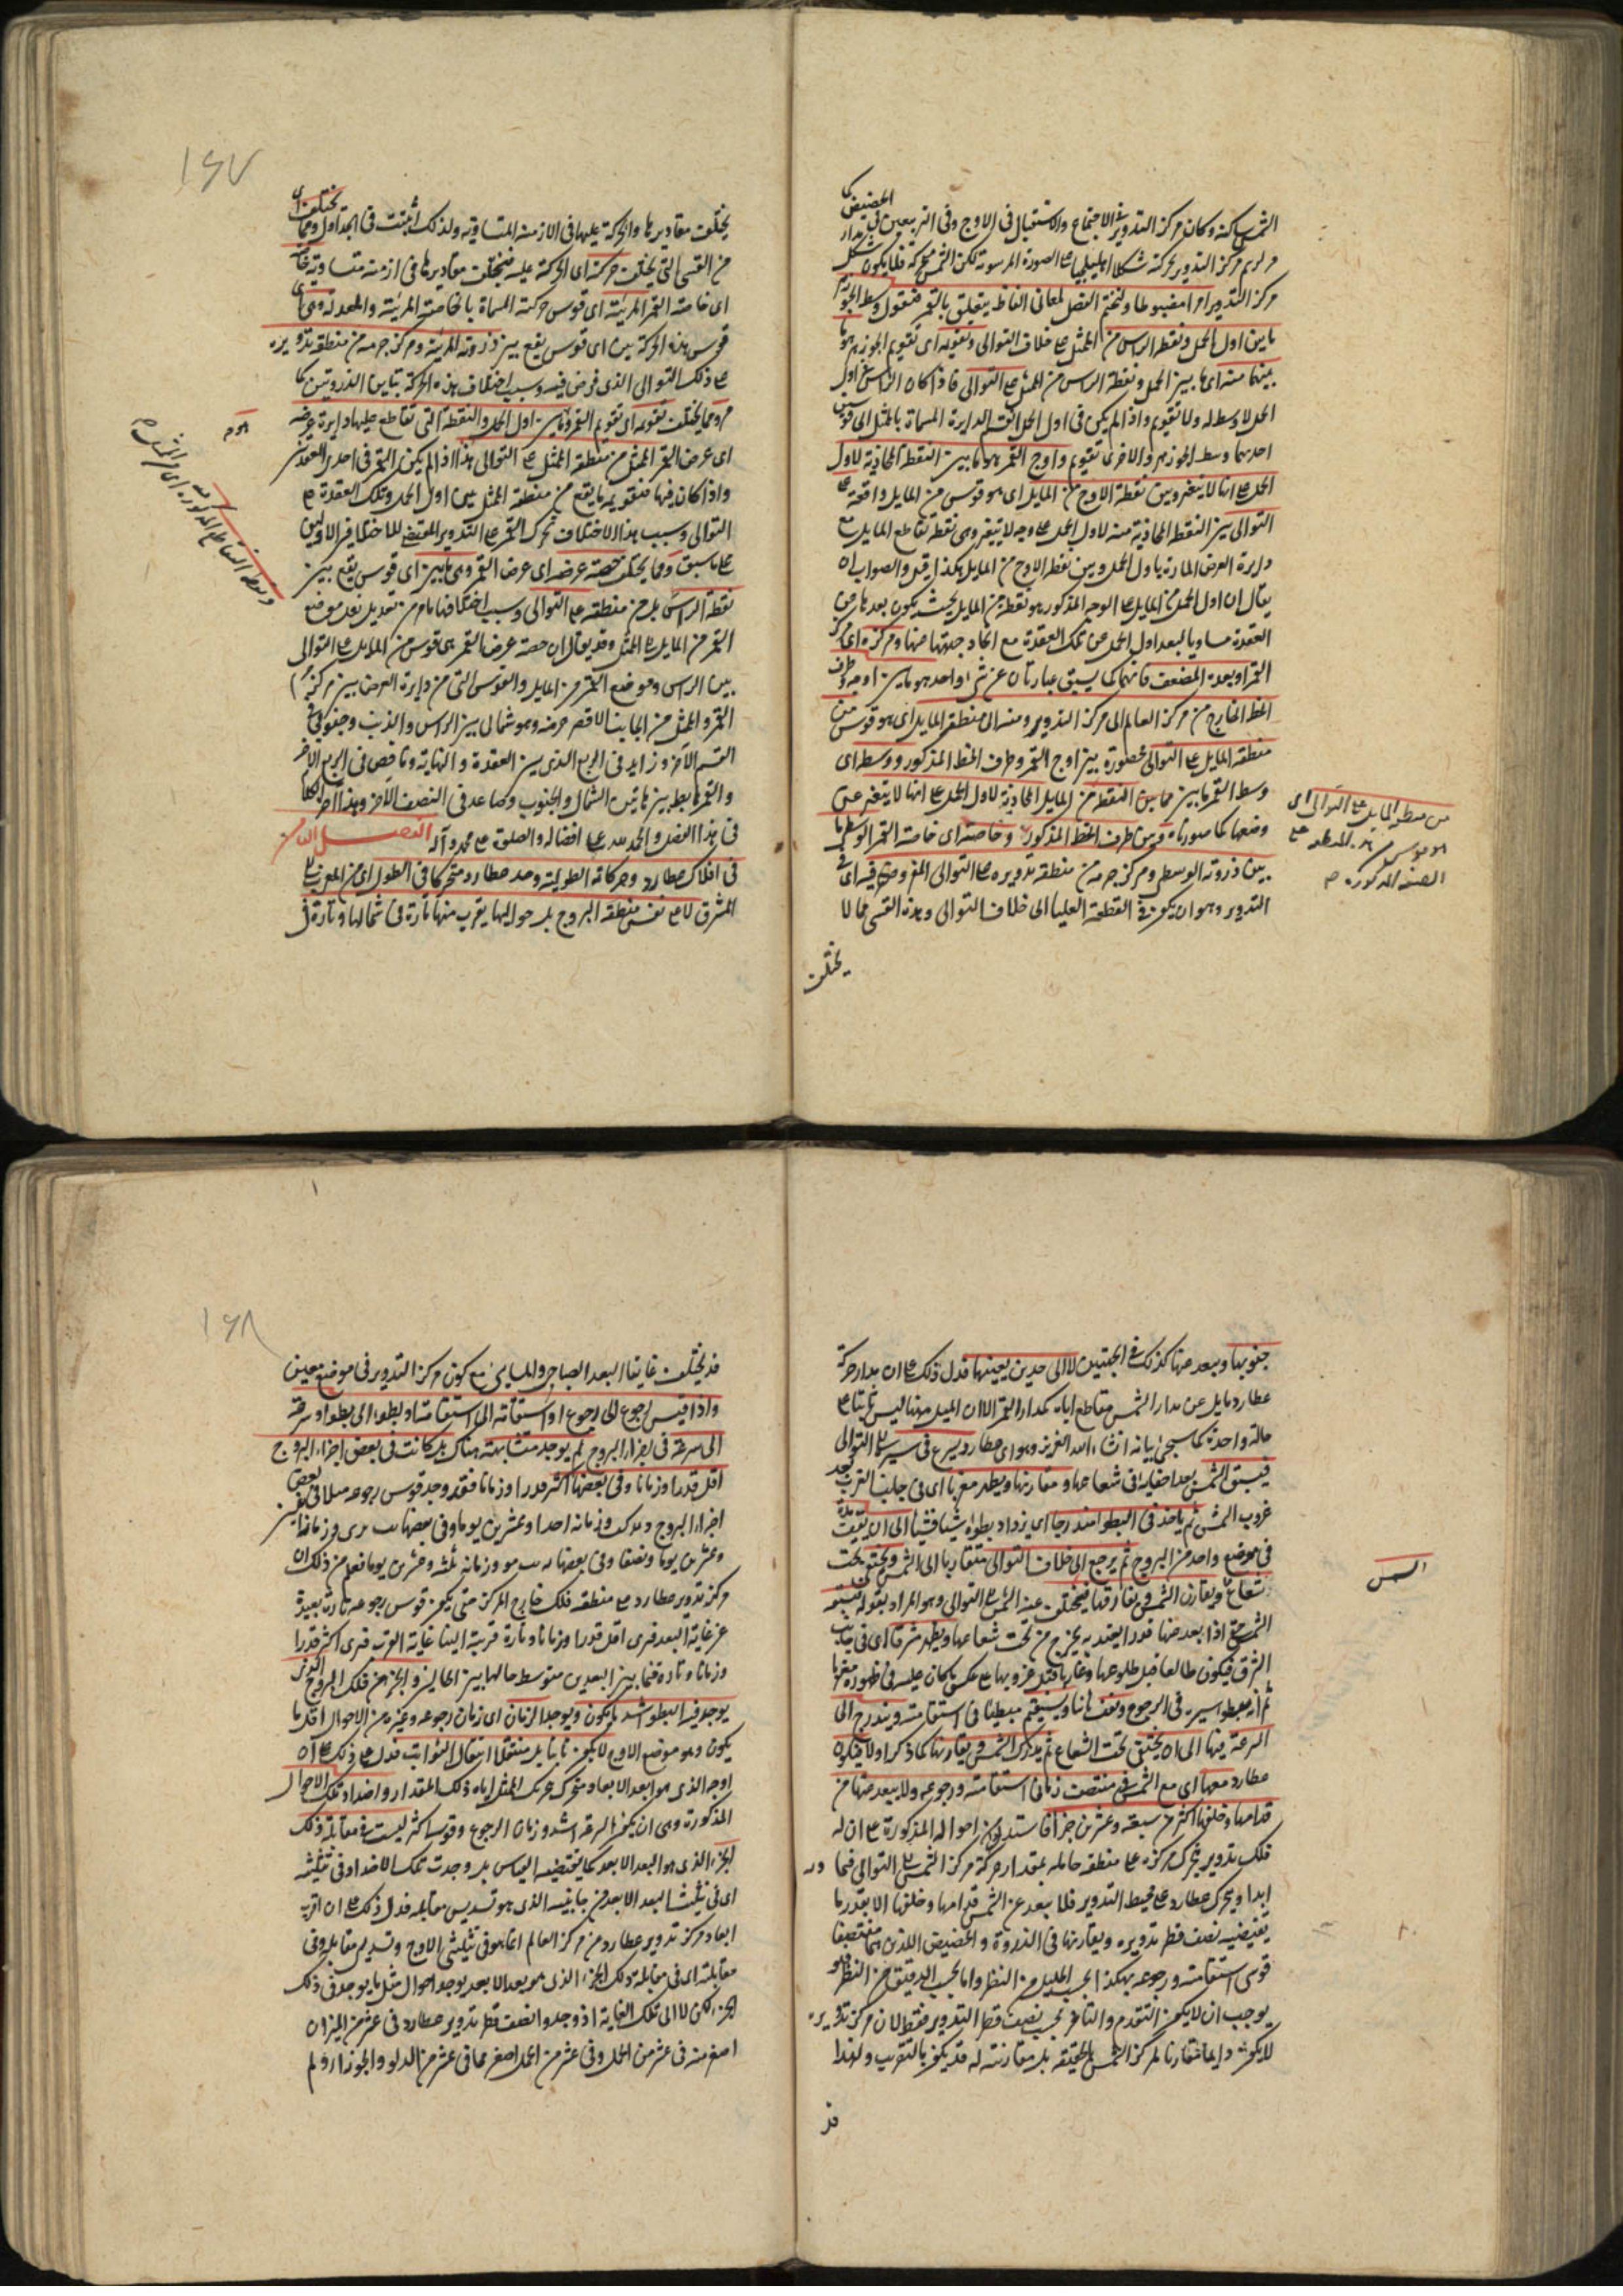 الشمس ساكنة وكان مركز التدوير فى الاجتماع والاستقبال فى الاوج وفى التربيعين فى الحضيض
مركز التدوير بحركته شكلا اهليلجيا على الصورة المرسومة لكن الشمس متحركة فلا يكون شكل مدار
مركز التدوير امرا مضبوطا ولنختم الفصل لمعانى الفاظ يتعلق بالقمر فنقول وسط الجوزهر
ما بين اول الحمل ونقطة الراس من الممثل على خلاف التوالى وتقويمه اى تقويم الجوزهر هو ما
بينهما منه اى ما بين الحمل ونقطة الراس من الممثل على التوالى فاذا كان الراس فى اول
الحمل لا وسط له ولا تقويم واذا لم يكن فى اول الحمل انقسم الدايرة المسماة بالممثل الى قوسين
احديهما وسط الجوزهر والاخرى تقويمه واوج القمر هو ما بين النقطة المحاذية لاول
الحمل على انها لا يتغير وبين نقطة الاوج من المايل اى هو قوس من المايل واقعة على
التوالى بين النقطة المحاذية منه لاول الحمل على وجه لا يتغير وهى نقطة تقاطع المايل مع
دايرة العرض المارة باول الحمل وبين نقطة الاوج من المايل هكذا قيل والصواب ان
يقال ان اول الحمل من المايل على الوجه المذكور هو نقطة من المايل بحيث يكون بعدها من
العقدة مساويا لبعد اول الحمل عن تلك العقدة مع اتحاد جهتها منها ومركزه اى مركز
القمر او بعده المضعف فانهما كما سبق عبارتان عن شئ واحد هو ما بين اوجه وطرف
الخط الخارج من مركز العالم الى مركز التدوير ومنه الى منطقة المايل اى هو قوس من
منطقة المايل على التوالى محصورة بين اوج القمر وطرف الخط المذكور ووسطه اى
وسط القمر ما بين النقطة من المايل المحاذية لاول الحمل على انها لا يتغير عن
وضعها كما صورناه وبين طرف الخط المذكور وخاصته اى خاصة القمر الوسطى ما
بين ذروته الوسطى ومركز جرمه من منطقة تدويره على التوالى المفروض فيه اى فى
التدوير وهو ان يكون فى القطعة العليا الى خلاف التوالى وهذه القسى مما لا
يختلف
من منطقة المايل على التوالى اى
هو قوس
الصفة المذكورة
١٦٧
يختلف مقاديرها والحركة عليها فى الازمنة المتساوية ولذلك اثبتت فى الجداول ومما يختلف اى
من القسى التى يختلف حركته اى الحركة عليه فيختلف مقاديرها فى ازمنة متساوية خاصته
اى خاصة القمر المرئية اى قوس حركته المسماة بالخاصة المرئية والمعدلة وهى اى
قوس هذه الحركة بين اى قوس يقع بين ذروته المرئية ومركز جرمه من منطقة تدويره
على ذلك التوالى الذى فرض فيه وسبب اختلاف هذه الحركة تباين الذروتين كما
مر ومما يختلف تقويمه اى تقويم القمر وما بين اول الحمل والنقطة التى تقاطع عليها دايرة عرضه
اى عرض القمر الممثل من منطقة الممثل على التوالى هذا اذا لم يكن القمر فى احدى العقدتين
واذا كان فيها فتقويمه ما يقع من منطقة الممثل بين اول الحمل وتلك العقدة
التوالى وسبب هذا الاختلاف تحرك القمر على التدوير المقتضى للاختلافين الاولين
على ما سبق ومما يختلف حصة عرضه اى عرض القمر وهى ما بين اى قوس يقع بين
نقطة الراس بل من منطقة على التوالى وسبب اختلافها ما مر من تعديل نقل موضع
القمر من المايل الى الممثل وقد يقال ان حصة عرض القمر هى قوس من المايل على التوالى
بين الراس وموضع القمر من المايل والقوس التى من دايرة العرض بين مركز
القمر والممثل من الجانب الاقصر عرضه وهو شمالى بين الراس والذنب وجنوبى فى
القسم الآخر وزايد فى الربع الذى بين العقدة والنهاية وناقص فى الربع الآخر
والقمر هابط بين نهايتى الشمال والجنوب وصاعد فى النصف الآخر وهذا آخر الكلام
فى هذا الفصل والحمد لله على افضاله والصلوة على محمد وآله الفصل الثامن
فى افلاك عطارد وحركاته الطولية وجد عطارد متحركا فى الطول اى من المغرب الى
المشرق لا على نفس منطقة البروج بل حواليها يقرب منها تارة فى شمالها وتارة فى
ونقطة التقاطع المذكورة
جنوبها ويبعد عنها كذلك فى الجهتين لا الى حدين بعينهما فدل ذلك على ان مدار حركة
عطارد مايل عن مدار الشمس مقاطع اياه كمدار القمر الا ان الميل هنا ليس ثابتا على
حالة واحدة كما سيجئ بيانه ان شاء الله العزيز وهو اى عطارد يسرع فى سيره الى التوالى
فيسبق الشمس بعد اختفايه فى شعاعها ومقارنتها ويظهر مغربا اى فى جانب المغرب بعد
غروب الشمس ثم ياخذ فى البطؤ متدرجا اى يزداد بطؤه شيئا فشيئا الى ان يقف مدة
فى موضع واحد من البروج ثم يرجع الى خلاف التوالى متقاربا الى الشمس ويختفى تحت
شعاع ويقارن الشمس ويفارقها فيتخلف عنه الشمس الى التوالى وهو المراد بقوله فتسبقه
الشمس حتى اذا بعد عنها قدرا يعتد به يخرج من تحت شعاعها ويظهر مشرقا اى فى جانب
الشرق فيكون طالعا قبل طلوعها وغاربا قبل غروبها على عكس ما كان عليه فى ظهوره مغربا
ثم انه يبطؤ سيره فى الرجوع ويقف ثانيا ويستقيم مبطئا فى استقامته ويتدرج الى
السرعة فيها الى ان يختفى تحت الشعاع ثم يدرك الشمس ويقارنها كما ذكر اولا فيكون
عطارد معها اى مع الشمس فى منتصف زمانى استقامته ورجوعه ولا يبعد عنها من
قدامها وخلفها اكثر من سبعة وعشرين جزءا فاستدلوا من احواله المذكورة على ان له
فلك تدوير يتحرك مركزه على منطقة حامله بمقدار حركة مركز الشمس الى التوالى فهما
ابدا ويتحرك عطارد على محيط التدوير فلا يبعد عن الشمس قدامها وخلفها الا بقدر ما
يقتضيه نصف قطر تدويره ويقارنها فى الذروة والحضيض اللذين هما منتصفا
قوسى استقامته ورجوعه هكذا بحسب الجليل من النظر واما بحسب الدقيق من النظر فهو
يوجب ان لا يكون التقدم والتاخر بحسب نصف قطر التدوير فقط لان مركز تدويره
لا يكون دايما مقارنا لمركز الشمس بالحقيقة بل مقارنته له قد يكون بالتقريب ولهذا
قد
الشمس
١٦٨
قد يختلف غايتا البعد الصباحى والمسايى مع كون مركز التدوير فى موضع معين
واذا قيس رجوع الى رجوع او استقامة الى استقامة او بطؤ الى بطؤ او سرعة
الى سرعة فى اجزاء البروج لم يوجد متشابهة هناك بل كانت فى بعض اجزاء البروج
اقل قدرا وزمانا وفى بعضها اكثر قدرا وزمانا فقد وجد قوس رجوعه مثلا فى بعض
اجزاء البروج وزمانه احدا وعشرين يوما وفى بعضها
وعشرين يوما ونصفا وفى بعضها وزمانه ثلثة وعشرين يوما فعلم من ذلك ان
مركز تدوير عطارد على منطقة فلك خارج المركز حتى يكون قوس رجوعه تارة بعيدة
عن غاية البعد فيرى اقل قدرا وزمانا وتارة قريبة الينا غاية القرب فيرى اكثر قدرا
وزمانا وتارة فيما بين البعدين متوسط حالها بين الحالين والجزء من فلك البروج الذى
يوجد فيه البطؤ اشد ما يكون ويوجد الزمان اى زمان رجوعه وغيره من الاحوال اقل ما
يكون وهو موضع الاوج لا يكون ثابتا بل منتقلا انتقال الثوابت فدل على ذلك على ان
اوجه الذى هو ابعد الابعاد متحرك بحركة الممثل اياه ذلك المقدار واضداد تلك الاحوال
المذكورة وهى ان يكون السرعة اشد وزمان الرجوع وقوسه اكثر ليست فى مقابلة ذلك
الجزء الذى هو البعد الابعد كما يقتضيه القياس بل وجدت تلك الاضداد فى تثليثيه
اى فى تثليث البعد الابعد من جانبيه الذى هو تسديس مقابله فدل ذلك على ان اقرب
ابعاد مركز تدوير عطارد من مركز العالم انما هو فى تثليثى الاوج وتسديسى مقابله وفى
مقابلته اى فى مقابلة ذلك الجزء الذى هو بعد الابعد يوجد احوال مثل ما يوجد فى ذلك
الجزء لكن لا الى تلك الغاية اذ وجدوا نصف قطر تدوير عطارد فى عشر من الميزان
اصغر منه فى عشر من الحمل وفى عشر من الحمل اصغر مما فى عشر من الدلو والجوزاء ولم